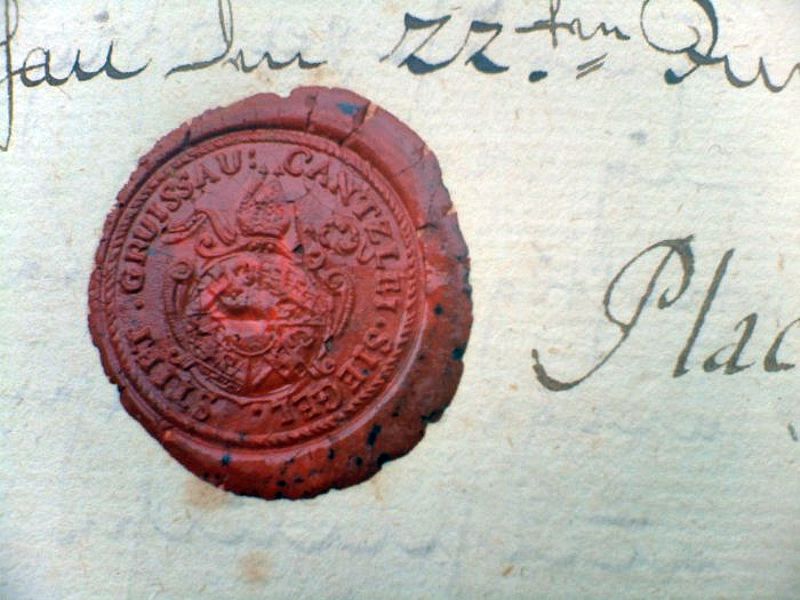 sau den 22.ten
STIFT . GRUESSAU: CANTZLEI . SIEGEL .
Plac